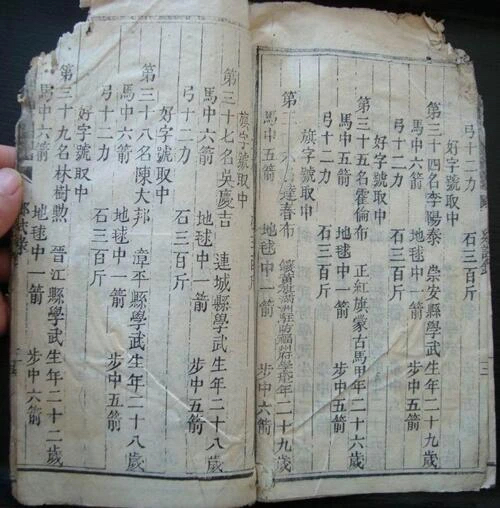 弓十二力 石三百斤
好字號取中
第三十四名李陽泰 崇安縣學武生年二十九歲
馬中六箭 地毬中一箭 步中五箭
弓十二力 石三百斤
好字號取中
第三十五名霍倫布 正紅旗蒙古馬甲年二十六歲
馬中六箭 地毬中一箭 步中五箭
弓十二力 石三百斤
旗字號取中
第三 六 達春布 鑲黃旗滿洲駐防福州府學武生年二十九歲
馬中五箭 地毬中一箭 步中六箭
旗字號取中
第三十七名吳慶吉 連城縣學武生年二十八歲
馬中六箭 地毬中一箭 步中五箭
弓十二力 石三百斤
好字號取中
第三十八名陳大邦 漳平縣學武生年二十八歲
馬中六箭 地毬中一箭 步中五箭
弓十二力 石三百斤
好字號取中
第三十九名林樹勲 晉江縣學武生年二十二歲
馬中六箭 地毬中一箭 步中六箭